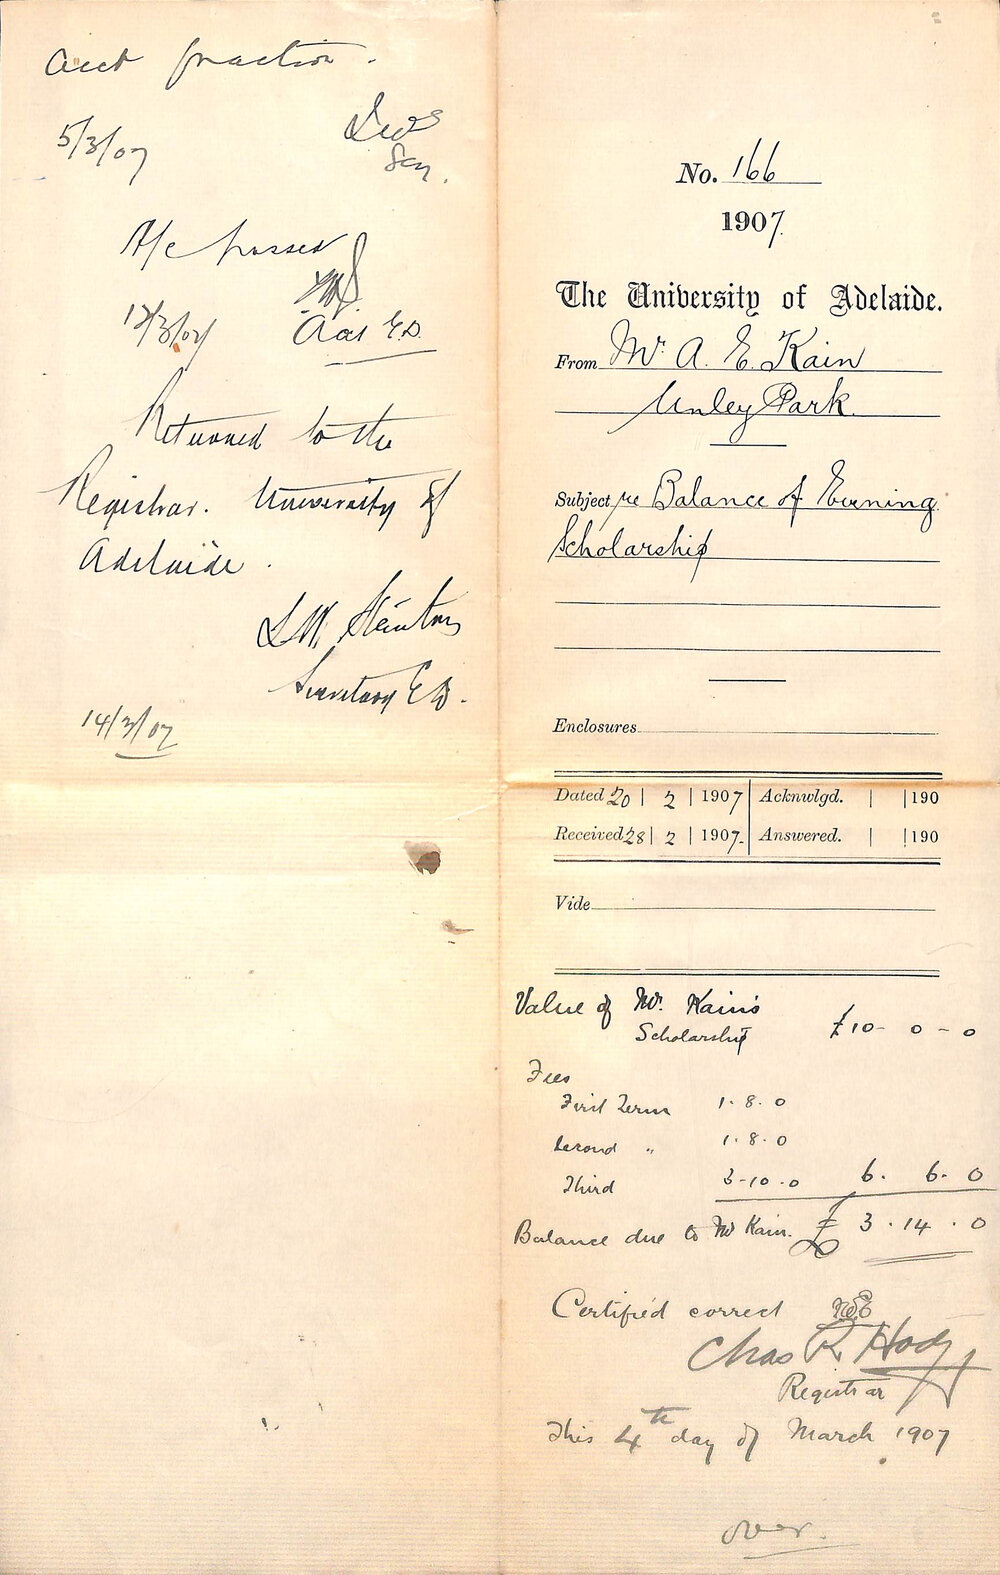 Acct fraction.
5/3/07
LWS
Sey.
A/c passed
12/3/07
Acct E.D.
Returned to the
Registrar. University of
Adelaide.
L W. Stanton
Secretary E D.
14/3/07
No. 166
1907.
The University of Adelaide.
From Mr. A. E. Kain
Unley Park
Subject re Balance of Evening
Scholarship
Enclosures
Dated 20 | 2 | 1907 Acknwlgd. | |190
Received 28 | 2 | 1907. Answered. | |190
Vide
Value of Mr. Kain's
Scholarship £10 - 0 - 0
Fees
First Term 1. 8. 0
Second " 1. 8. 0
Third 3-10.0 6. 6. 0
Balance due to Mr Kain. £ 3. 14. 0
Certified correct
Chas R Hodge
Registrar
This 4th day of March 1907
over.